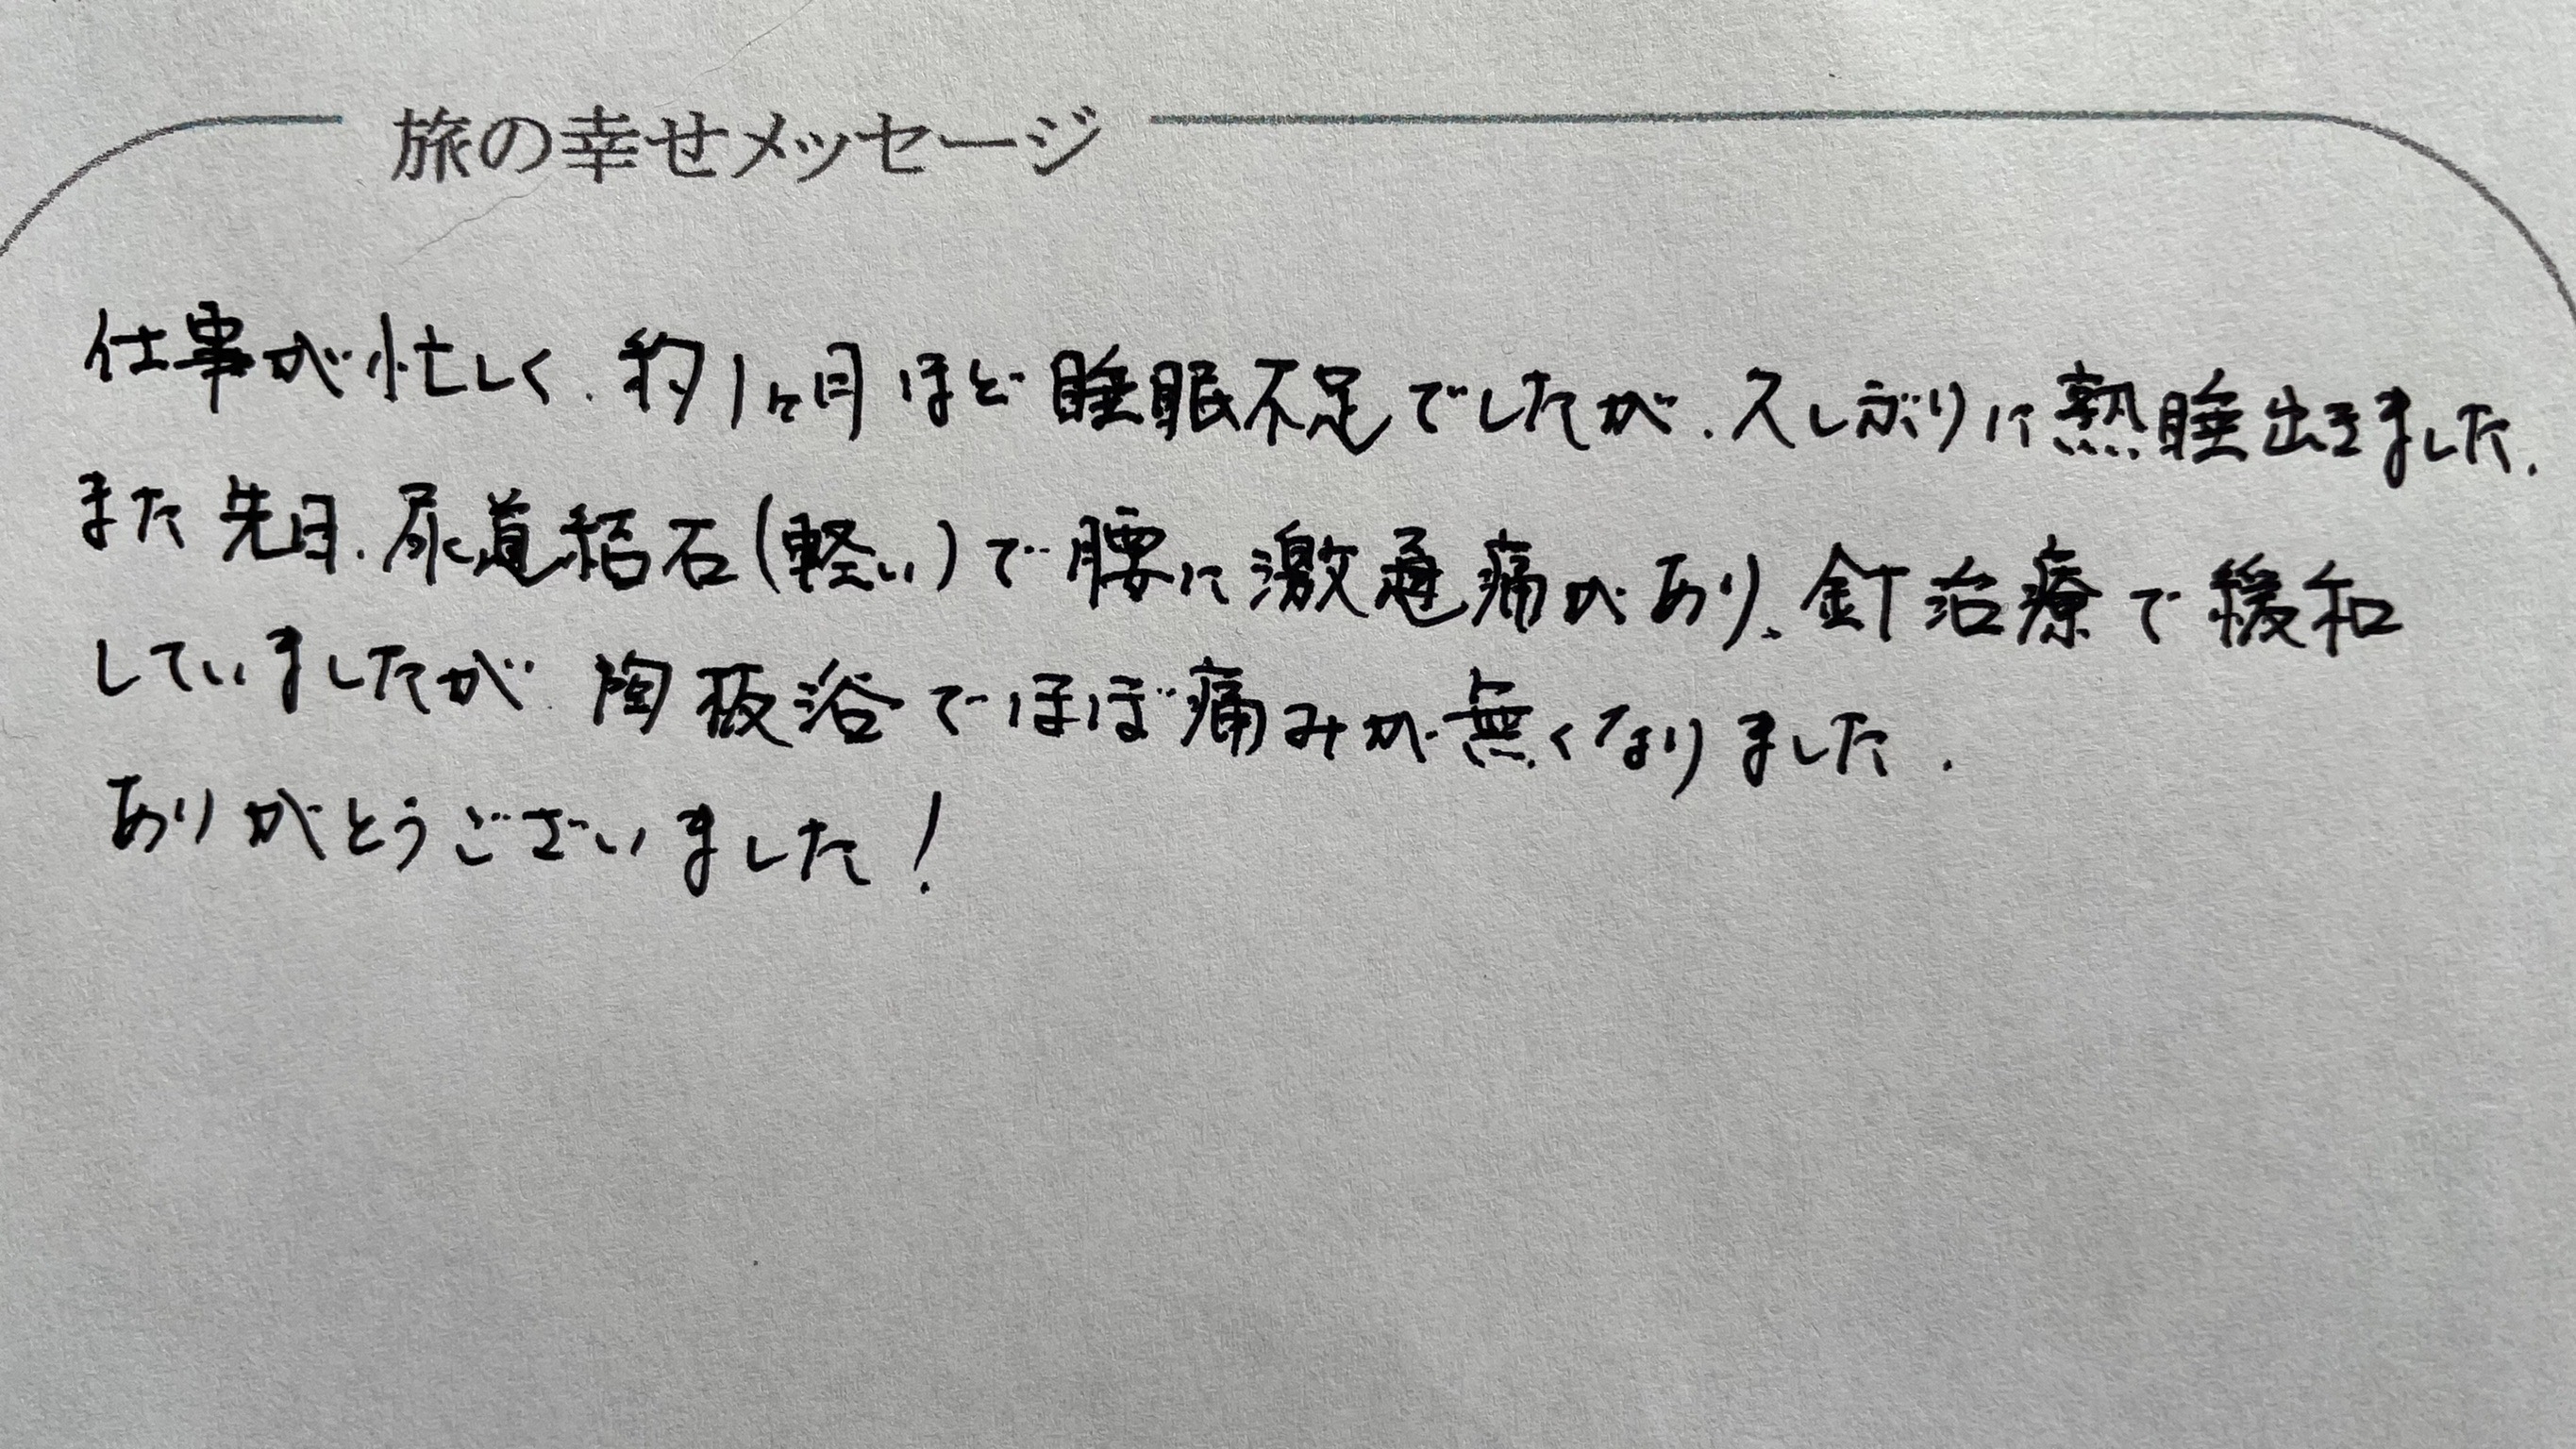 旅の幸せメッセージ
仕事が忙しく、約1ヶ月ほど睡眠不足でしたが、久しぶりに熟睡出きました。
また先日、尿道結石(軽い)で腰に激通痛があり、針治療で緩和
していましたが 陶板浴でほぼ痛みが無くなりました。
ありがとうございました!